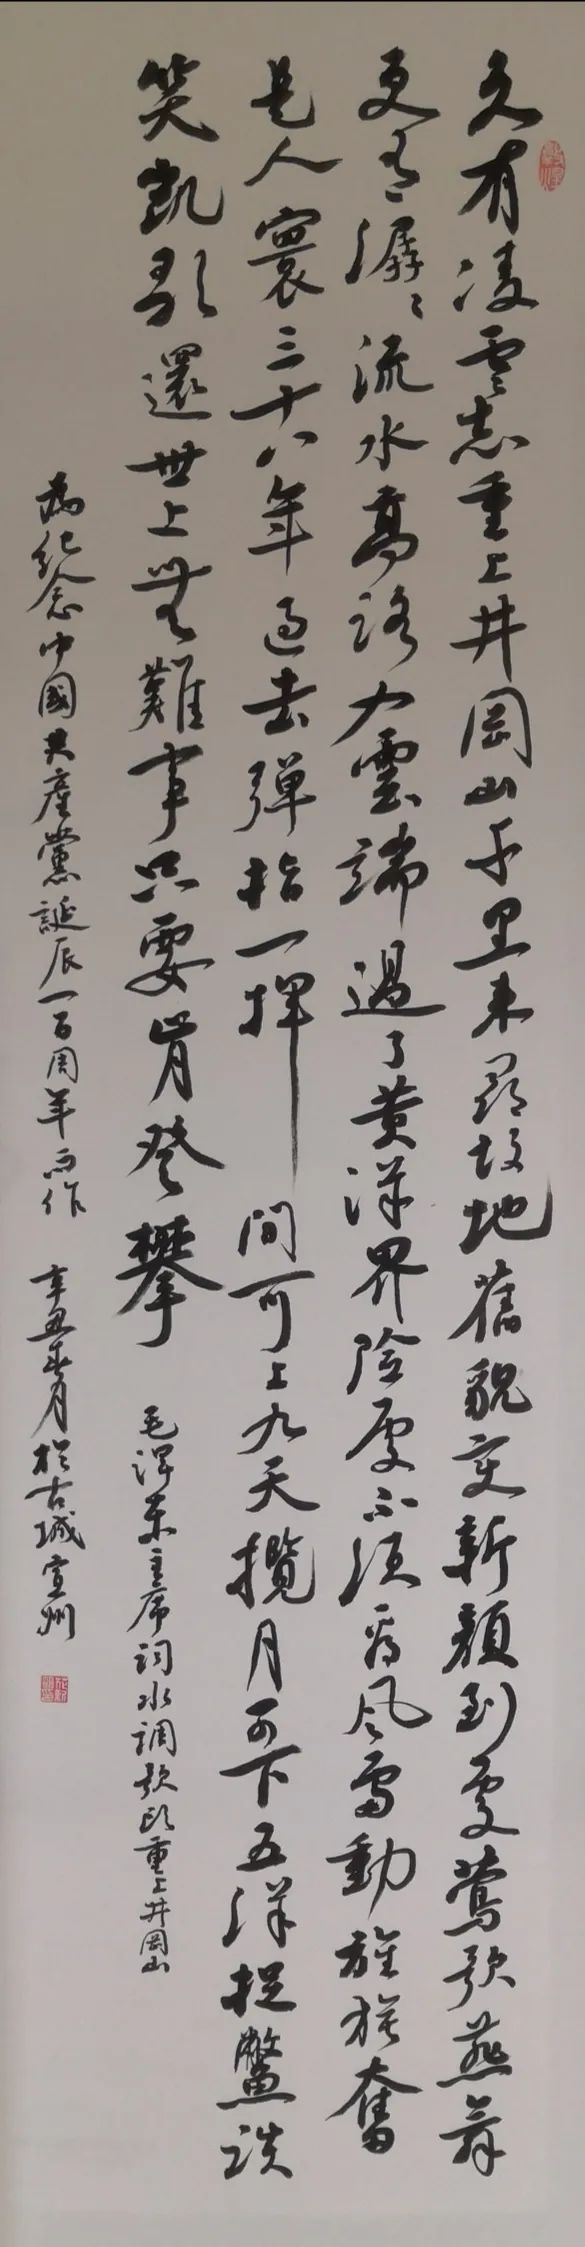 久有凌雲志重上井岡山千里来尋故地舊貌变新顏到處鶯歌燕舞
更有潺〻流水高路入雲端過了黄洋界险處不须看风雷動旌旗奮
是人寰三十八年过去彈指一揮間可上九天攬月可下五洋捉鱉談
笑凱歌還世上無難事只要肯登攀
毛澤東主席词水调歌头重上井岡山
為纪念中國共産黨誕辰一百周年而作 辛丑春月於古城宣州